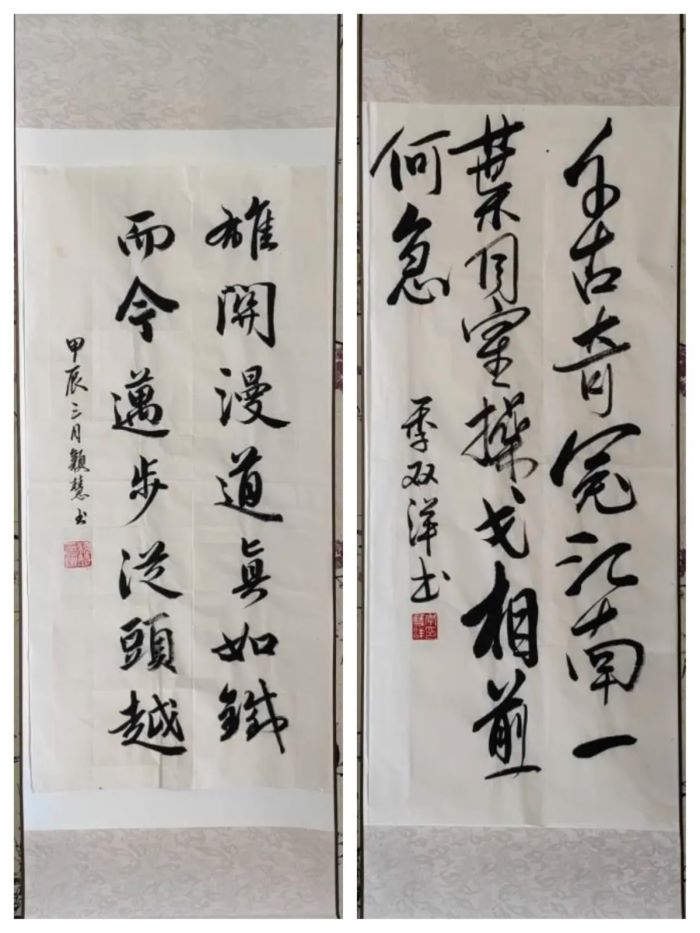 雄關漫道真如鐵
而今邁步從頭越
甲辰三月穎慧书
千古奇冤江南一
葉同室操戈相煎
何急
季双洋书